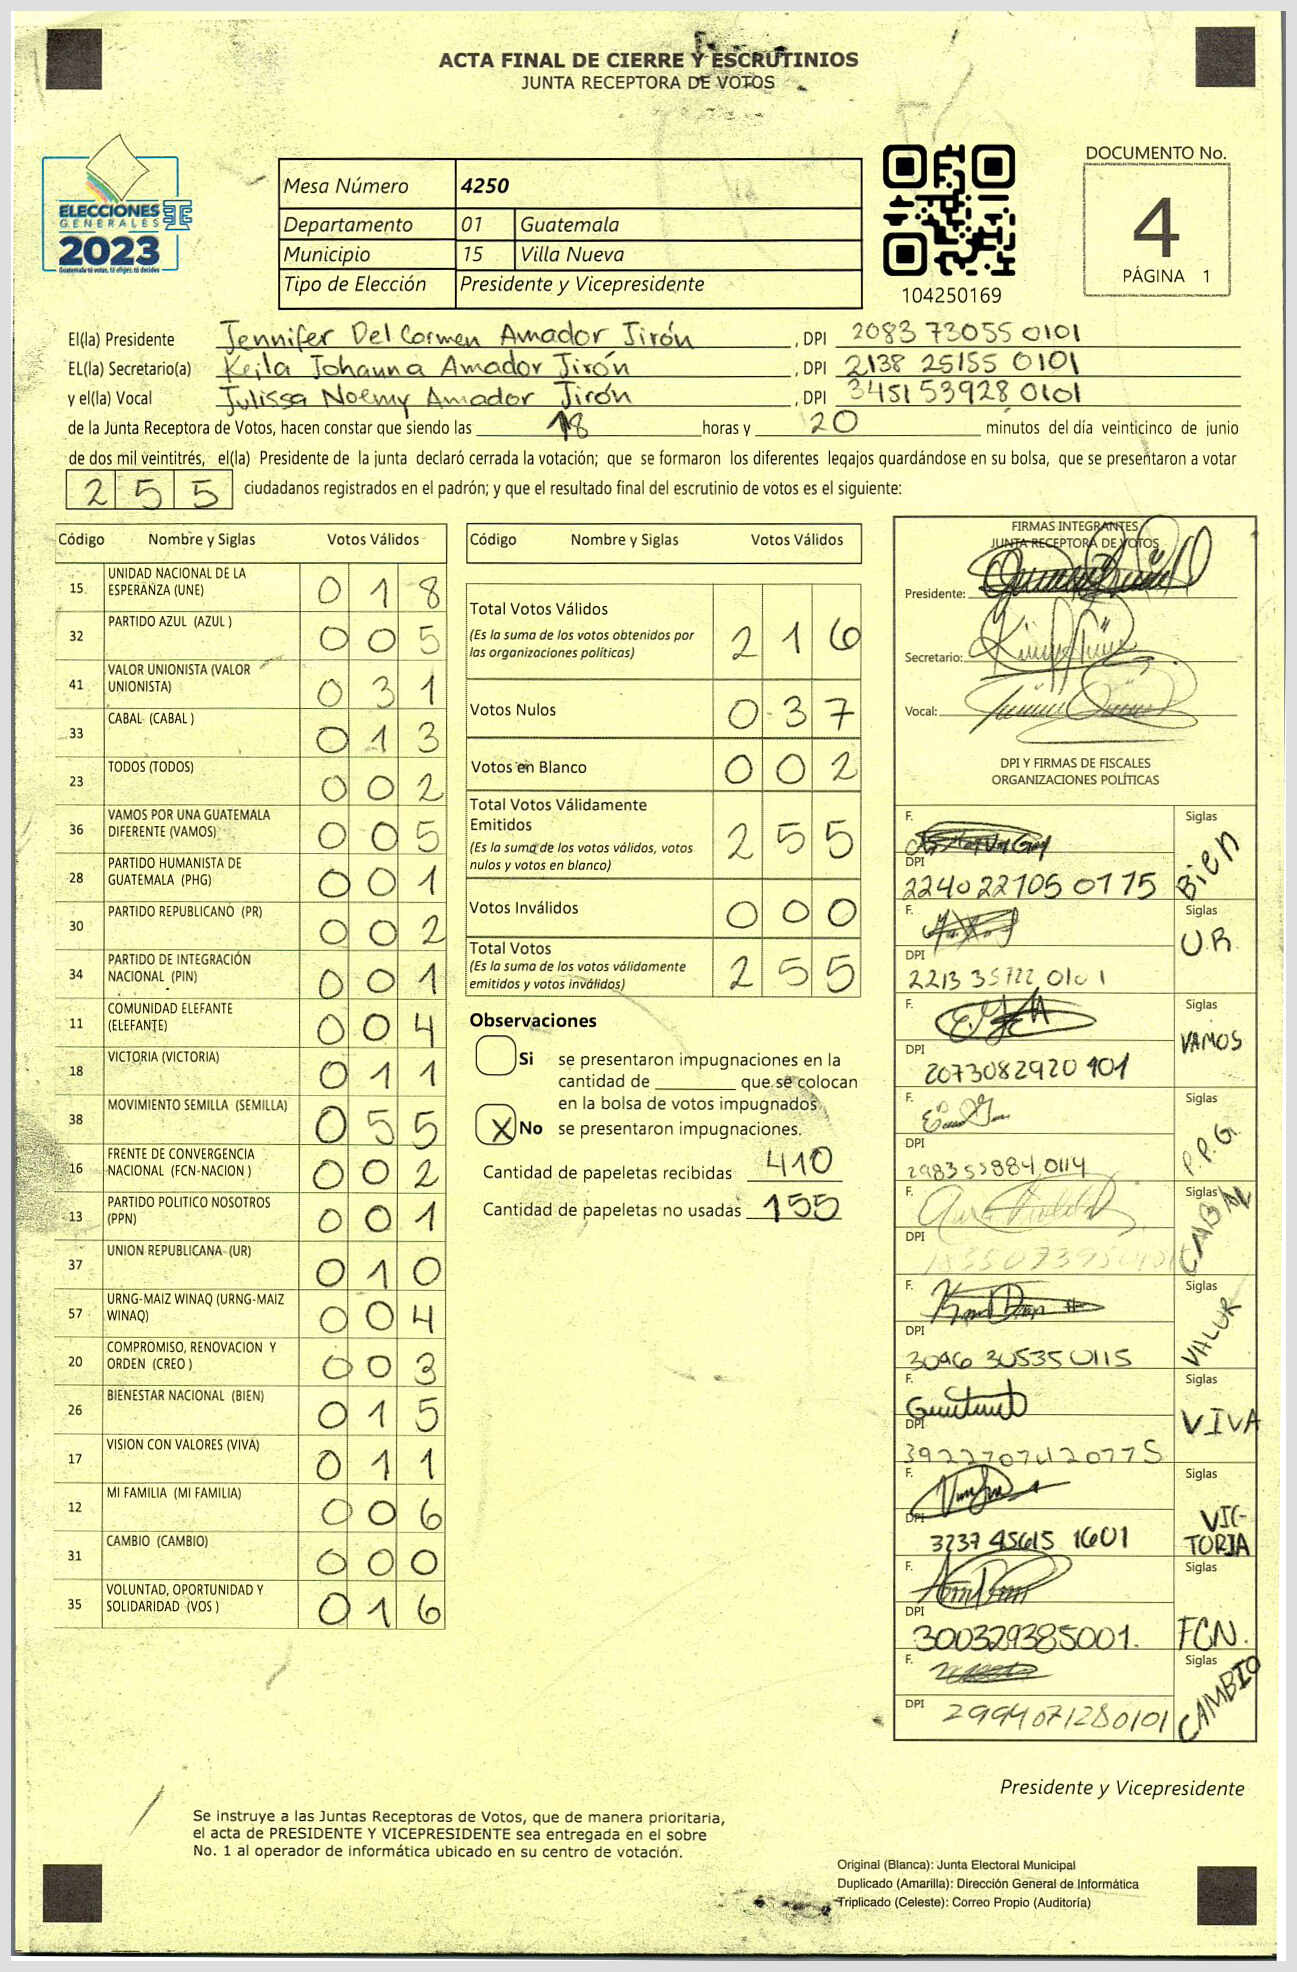 ACTA FINAL DE CIERRE Y ESCRUTINIOS
JUNTA RECEPTORA DE VOTOS
ELECCIONES
GENERALES
2023
Guatemala tú votas, tú eliges, tú decides
Mesa Número 4250
Departamento 01 Guatemala
Municipio 15 Villa Nueva
Tipo de Elección Presidente y Vicepresidente
104250169
DOCUMENTO No.
4
PÁGINA 1
El(la) Presidente Jennifer Del Carmen Amador Jirón, DPI 2083 73055 0101
EL(la) Secretario(a) Keila Johanna Amador Jirón, DPI 2138 25155 0101
y el(la) Vocal Julissa Noemy Amador Jirón, DPI 3451 53928 0101
de la Junta Receptora de Votos, hacen constar que siendo las 18 horas y 20 minutos del día veinticinco de junio
de dos mil veintitrés, el(la) Presidente de la junta declaró cerrada la votación; que se formaron los diferentes legajos guardándose en su bolsa, que se presentaron a votar
255 ciudadanos registrados en el padrón; y que el resultado final del escrutinio de votos es el siguiente:
Código Nombre y Siglas Votos Válidos
15 UNIDAD NACIONAL DE LA ESPERANZA (UNE) 018
32 PARTIDO AZUL (AZUL ) 005
41 VALOR UNIONISTA (VALOR UNIONISTA) 031
33 CABAL (CABAL ) 013
23 TODOS (TODOS) 002
36 VAMOS POR UNA GUATEMALA DIFERENTE (VAMOS) 005
28 PARTIDO HUMANISTA DE GUATEMALA (PHG) 001
30 PARTIDO REPUBLICANO (PR) 002
34 PARTIDO DE INTEGRACIÓN NACIONAL (PIN) 001
11 COMUNIDAD ELEFANTE (ELEFANTE) 004
18 VICTORIA (VICTORIA) 011
38 MOVIMIENTO SEMILLA (SEMILLA) 055
16 FRENTE DE CONVERGENCIA NACIONAL (FCN-NACION ) 002
13 PARTIDO POLITICO NOSOTROS (PPN) 001
37 UNION REPUBLICANA (UR) 010
57 URNG-MAIZ WINAQ (URNG-MAIZ WINAQ) 004
20 COMPROMISO, RENOVACION Y ORDEN (CREO ) 003
26 BIENESTAR NACIONAL (BIEN) 015
17 VISION CON VALORES (VIVA) 011
12 MI FAMILIA (MI FAMILIA) 006
31 CAMBIO (CAMBIO) 000
35 VOLUNTAD, OPORTUNIDAD Y SOLIDARIDAD (VOS ) 016
Código Nombre y Siglas Votos Válidos
Total Votos Válidos 216
(Es la suma de los votos obtenidos por
las organizaciones políticas)
Votos Nulos 037
Votos en Blanco 002
Total Votos Válidamente
Emitidos 255
(Es la suma de los votos válidos, votos
nulos y votos en blanco)
Votos Inválidos 000
Total Votos 255
(Es la suma de los votos válidamente
emitidos y votos inválidos)
Observaciones
Si se presentaron impugnaciones en la
cantidad de ________ que se colocan
en la bolsa de votos impugnados
X No se presentaron impugnaciones.
Cantidad de papeletas recibidas 410
Cantidad de papeletas no usadas 155
FIRMAS INTEGRANTES
JUNTA RECEPTORA DE VOTOS
Presidente:
Secretario:
Vocal:
DPI Y FIRMAS DE FISCALES
ORGANIZACIONES POLÍTICAS
F. Siglas Bien
DPI 2240 22105 0115
F. Siglas U.R.
DPI 2213 35722 0101
F. Siglas VAMOS
DPI 2073082920 101
F. Siglas P.P.G.
DPI
F. Siglas
DPI
F. Siglas VALUR
DPI 3046 30535 0115
F. Siglas VIVA
DPI
F. Siglas VIC-
TORIA
DPI 3237 45615 1601
F. Siglas FCN.
DPI 300329385001.
F. Siglas CAMBIO
DPI 2994071280101
Presidente y Vicepresidente
Se instruye a las Juntas Receptoras de Votos, que de manera prioritaria,
el acta de PRESIDENTE Y VICEPRESIDENTE sea entregada en el sobre
No. 1 al operador de informática ubicado en su centro de votación.
Original (Blanca): Junta Electoral Municipal
Duplicado (Amarilla): Dirección General de Informática
Triplicado (Celeste): Correo Propio (Auditoría)